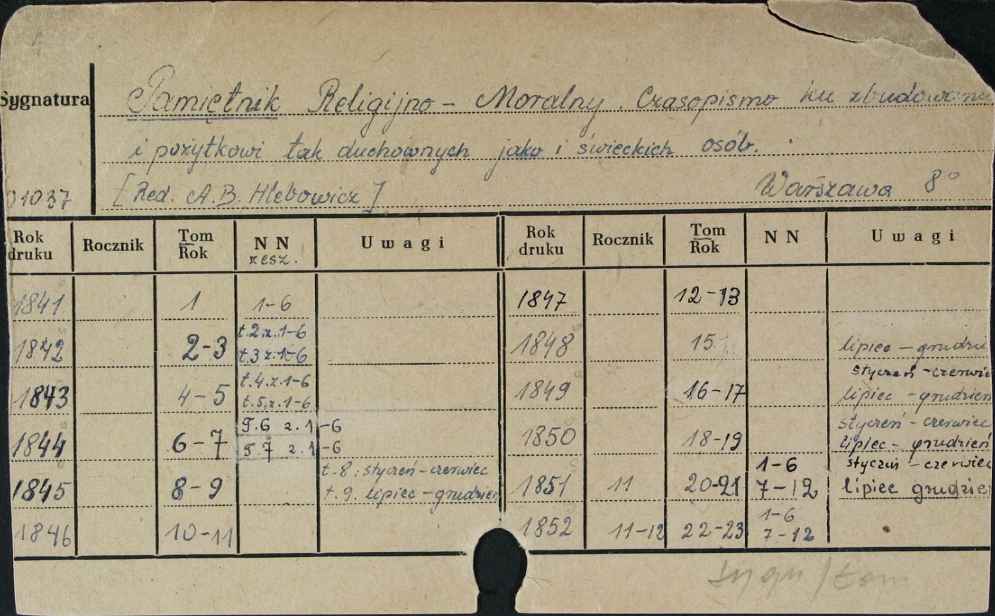 Sygnatura
Pamiętnik Religijno - Moralny. Czasopismo ku zbudowaniu
i pożytkowi tak duchownych jako i świeckich osób.
01037 [Red. A.B. Hlebowicz] Warszawa 8°
Rok druku Rocznik Tom Rok NN zesz. Uwagi Rok druku Rocznik Tom Rok NN Uwagi
1841 1 1-6 1847 12-13
1842 2-3 t.2.z.1-6 t.3 z.1-6 1848 15 lipiec - grudzień
1843 4-5 t.4.z.1-6 t.5.z.1-6 1849 16-17 styczeń - czerwiec lipiec - grudzień
1844 6-7 T.6 z.1-6 T.7 z.1-6 1850 18-19 styczeń - czerwiec lipiec - grudzień
1845 8-9 t.8: styczeń - czerwiec t.9. lipiec - grudzień 1851 11 20-21 1-6 7-12 styczeń - czerwiec lipiec grudzień
1846 10-11 1852 11-12 22-23 1-6 7-12